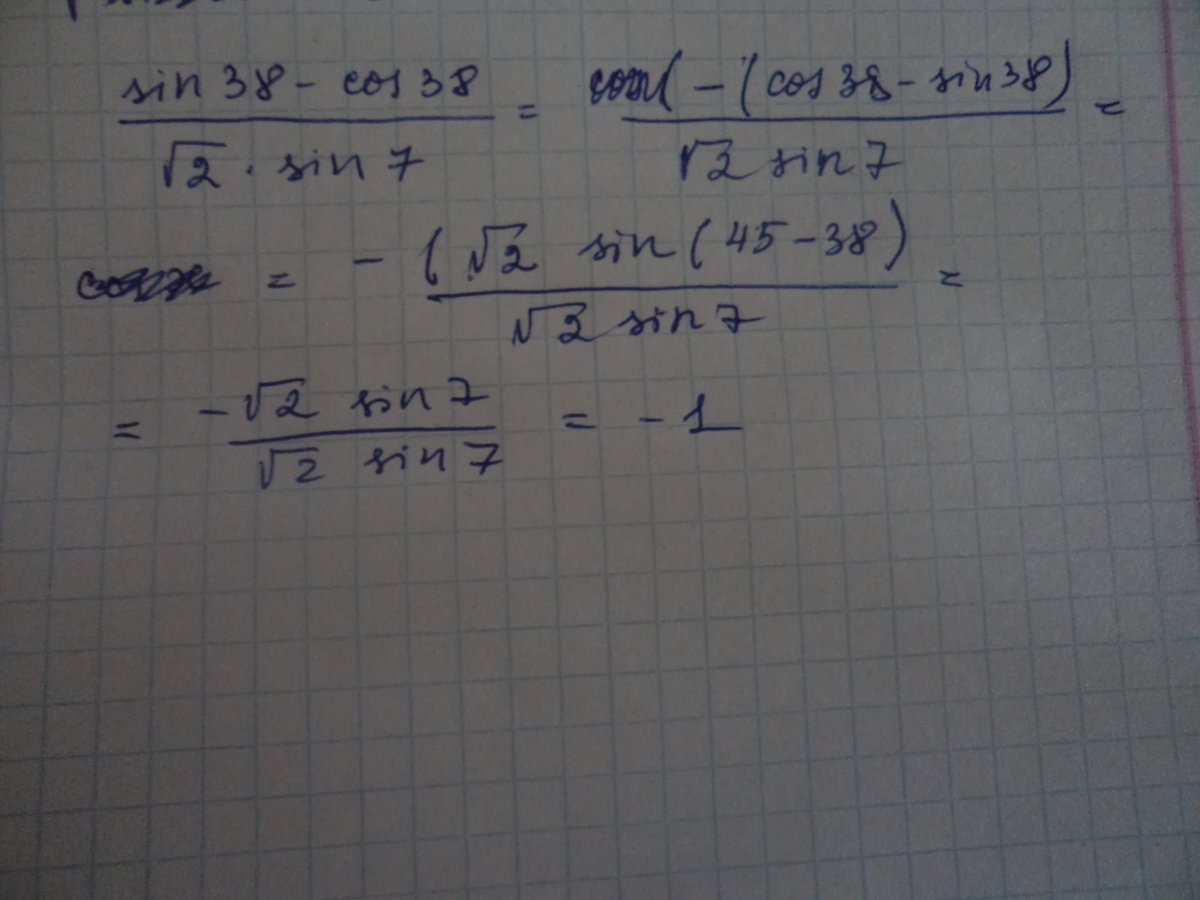 sin 38 - cos 38 / √2 · sin 7 = - (cos 38 - sin 38) / √2 sin 7 =
= - (√2 sin (45 - 38) / √2 sin 7 =
= -√2 sin 7 / √2 sin 7 = - 1